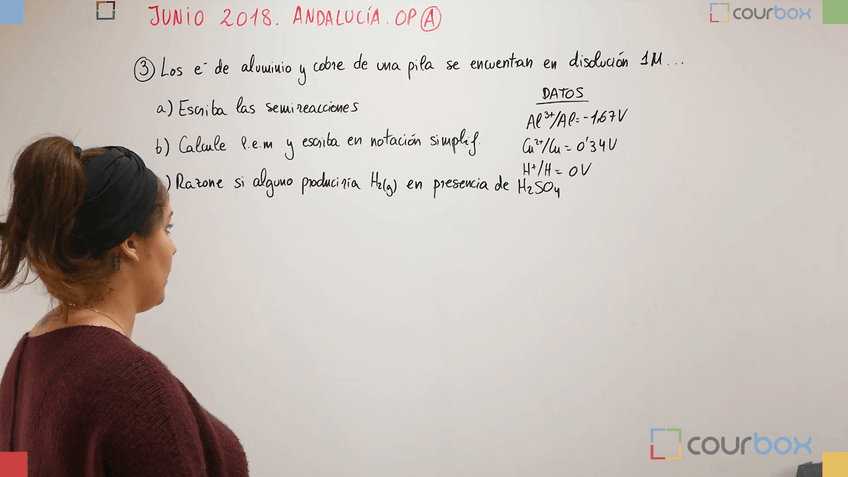 JUNIO 2018. ANDALUCÍA. OP A
courbox
3 Los e⁻ de aluminio y cobre de una pila se encuentran en disolución 1M...
DATOS
a) Escriba las semireacciones
Al³⁺/Al = -1,67V
b) Calcule f.e.m y escriba en notación simplif.
Cu²⁺/Cu = 0'34V
H⁺/H = 0V
) Razone si alguno produciría H₂(g) en presencia de H₂SO₄
courbox